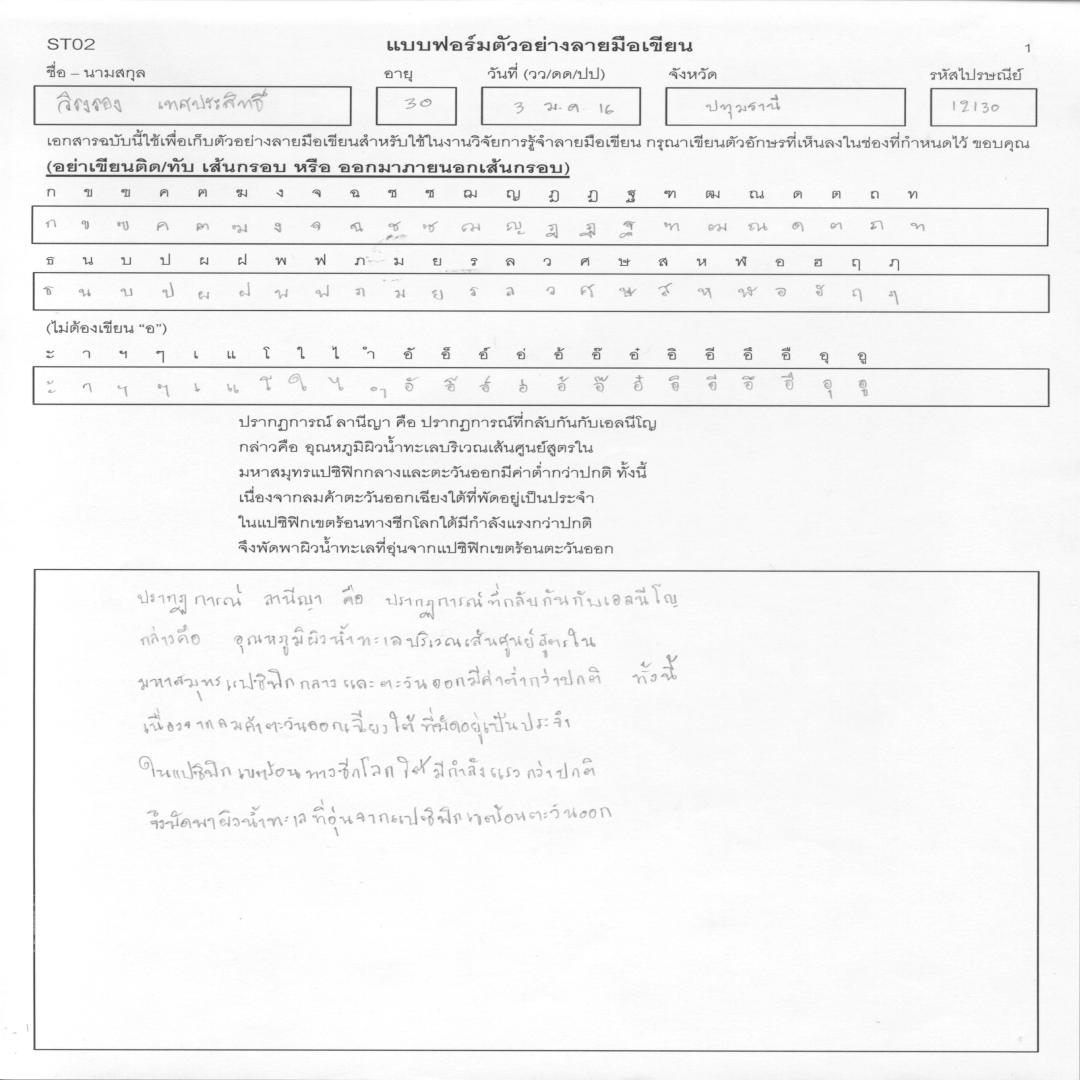 ST02 แบบฟอร์มตัวอย่างลายมือเขียน 1
ชื่อ – นามสกุล อายุ วันที่ (วว/ดด/ปป) จังหวัด รหัสไปรษณีย์
เทศประสิทธิ์ 30 3 ม.ค. 16 ปทุมธานี 12130
เอกสารฉบับนี้ใช้เพื่อเก็บตัวอย่างลายมือเขียนสำหรับใช้ในงานวิจัยการรู้จำลายมือเขียน กรุณาเขียนตัวอักษรที่เห็นลงในช่องที่กำหนดไว้ ขอบคุณ
(อย่าเขียนติด/ทับ เส้นกรอบ หรือ ออกมาภายนอกเส้นกรอบ)
ก ข ฃ ค ฅ ฆ ง จ ฉ ช ซ ฌ ญ ฎ ฏ ฐ ฑ ฒ ณ ด ต ถ ท
ก ข ฃ ค ฅ ฆ ง จ ฉ ช ซ ฌ ญ ฎ ฏ ฐ ฑ ฒ ณ ด ต ถ ท
ธ น บ ป ผ ฝ พ ฟ ภ ม ย ร ล ว ศ ษ ส ห ฬ อ ฮ ฤ ฦ
ธ น บ ป ผ ฝ พ ฟ ภ ม ย ร ล ว ศ ษ ส ห ฬ อ ฮ ฤ ฦ
(ไม่ต้องเขียน "อ")
ะ า ฯ ๆ เ แ โ ใ ไ ำ อั อ็ อ์ อ่ อ้ อ๊ อ๋ อิ อี อึ อื อุ อู
ะ า ฯ ๆ เ แ โ ใ ไ ำ อั อ็ อ์ อ่ อ้ อ๊ อ๋ อิ อี อึ อื อุ อู
ปรากฏการณ์ ลานีญา คือ ปรากฏการณ์ที่กลับกันกับเอลนีโญ
กล่าวคือ อุณหภูมิผิวน้ำทะเลบริเวณเส้นศูนย์สูตรใน
มหาสมุทรแปซิฟิกกลางและตะวันออกมีค่าต่ำกว่าปกติ ทั้งนี้
เนื่องจากลมค้าตะวันออกเฉียงใต้ที่พัดอยู่เป็นประจำ
ในแปซิฟิกเขตร้อนทางซีกโลกใต้มีกำลังแรงกว่าปกติ
จึงพัดพาผิวน้ำทะเลที่อุ่นจากแปซิฟิกเขตร้อนตะวันออก
ปรากฏการณ์ ลานีญา คือ ปรากฏการณ์ที่กลับกันกับเอลนีโญ
กล่าวคือ อุณหภูมิผิวน้ำทะเลบริเวณเส้นศูนย์สูตรใน
มหาสมุทรแปซิฟิกกลางและตะวันออกมีค่าต่ำกว่าปกติ ทั้งนี้
เนื่องจากลมค้าตะวันออกเฉียงใต้ที่พัดอยู่เป็นประจำ
ในแปซิฟิกเขตร้อนทางซีกโลกใต้มีกำลังแรงกว่าปกติ
จึงพัดพาผิวน้ำทะเลที่อุ่นจากแปซิฟิกเขตร้อนตะวันออก